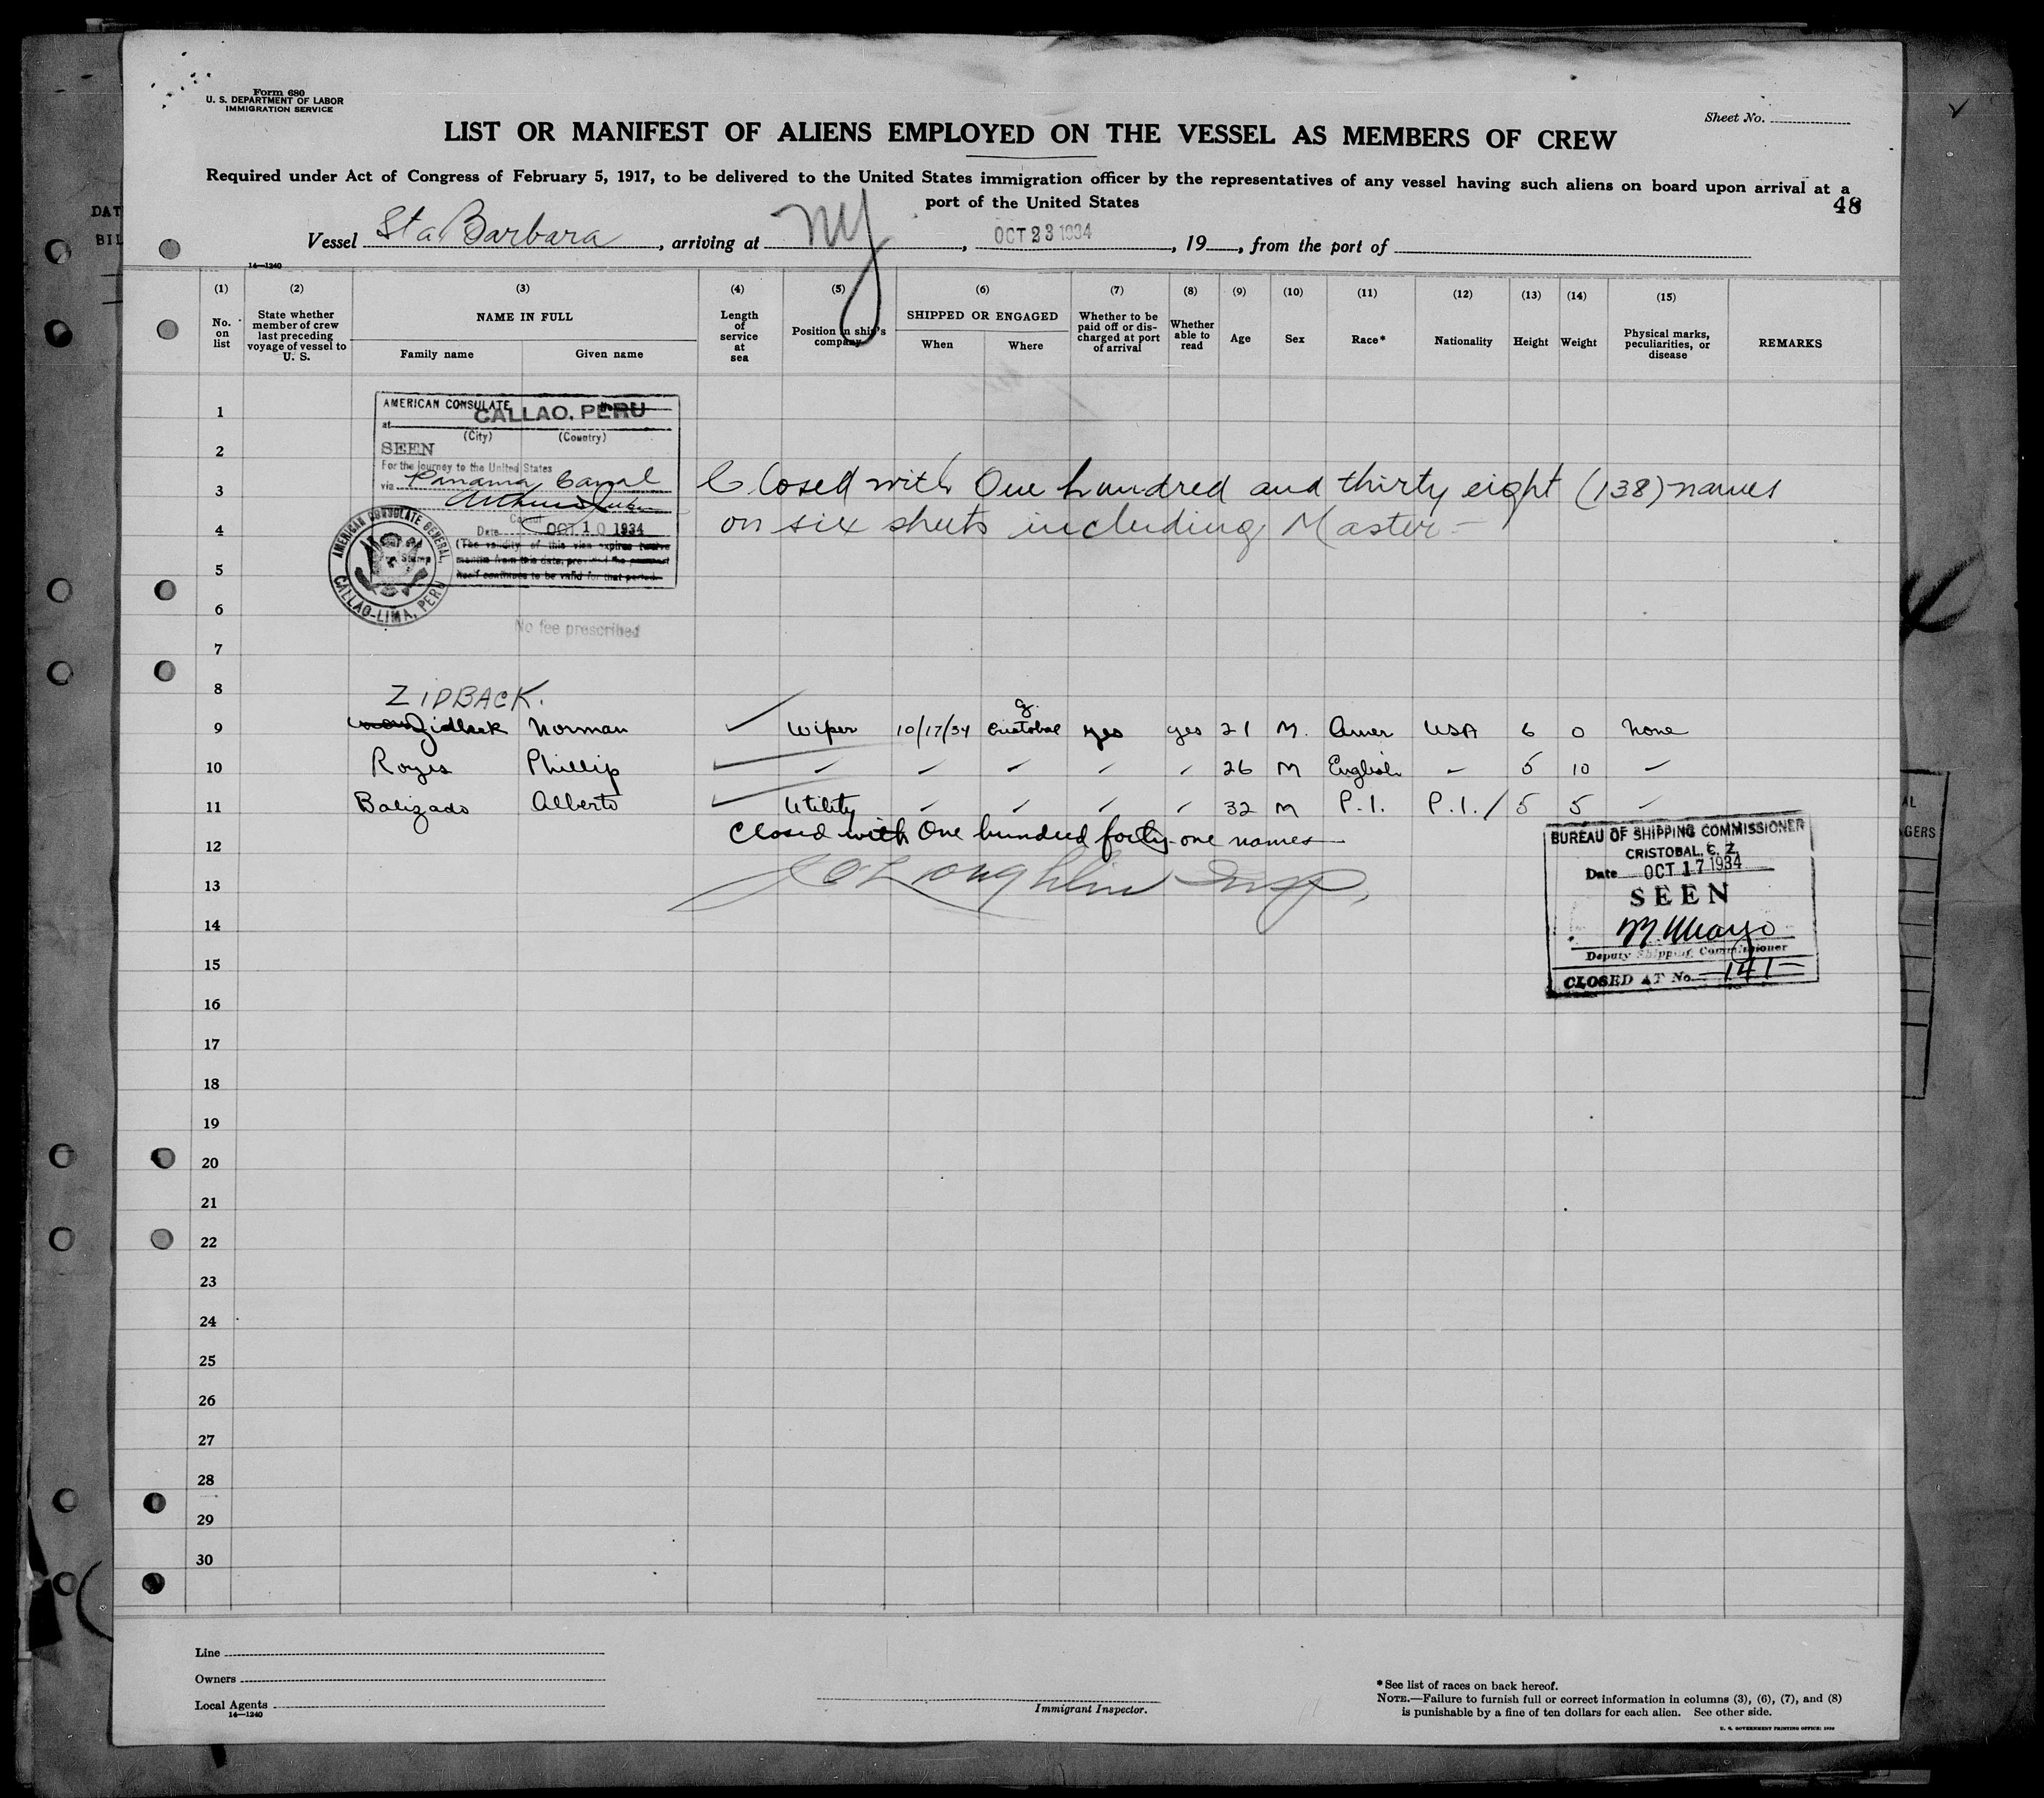 Form 680
U. S. DEPARTMENT OF LABOR
IMMIGRATION SERVICE
Sheet No.
LIST OR MANIFEST OF ALIENS EMPLOYED ON THE VESSEL AS MEMBERS OF CREW
Required under Act of Congress of February 5, 1917, to be delivered to the United States immigration officer by the representatives of any vessel having such aliens on board upon arrival at a
port of the United States
48
Vessel Sta Barbara, arriving at NY, OCT 23 1934, 19, from the port of
14—1240
(1) (2) (3) (4) (5) (6) (7) (8) (9) (10) (11) (12) (13) (14) (15)
No. on list
State whether member of crew last preceding voyage of vessel to U. S.
NAME IN FULL
Family name Given name
Length of service at sea
Position in ship's company
SHIPPED OR ENGAGED
When Where
Whether to be paid off or discharged at port of arrival
Whether able to read
Age
Sex
Race*
Nationality
Height
Weight
Physical marks, peculiarities, or disease
REMARKS
AMERICAN CONSULATE
at CALLAO, PERU
(City) (Country)
SEEN
For the journey to the United States
via Panama Canal
Consul
Date OCT 10 1934
(The validity of this visa expires twelve
months from this date, provided the passport
itself continues to be valid for that period.
AMERICAN CONSULATE GENERAL
CALLAO-LIMA, PERU
No fee prescribed
1
2
3 Closed with One hundred and thirty eight (138) names
4 on six sheets including Master -
5
6
7
8 ZIDBACK.
9 Zidback Norman Wiper 10/17/34 Cristobal yes yes 21 M. Amer USA 6 0 none
10 Royes Phillip 26 M English 5 10
11 Balizado Alberto Utility 32 M P.I. P.I. 5 5
12 Closed with One hundred forty-one names
13 Insp.
14
15
16
17
18
19
20
21
22
23
24
25
26
27
28
29
30
BUREAU OF SHIPPING COMMISSIONER
CRISTOBAL, C. Z.
Date OCT 17 1934
SEEN
M. Mayo
Deputy Shipping Commissioner
CLOSED AT No. 141
Line
Owners
Local Agents
14—1240
Immigrant Inspector.
*See list of races on back hereof.
NOTE.—Failure to furnish full or correct information in columns (3), (6), (7), and (8)
is punishable by a fine of ten dollars for each alien. See other side.